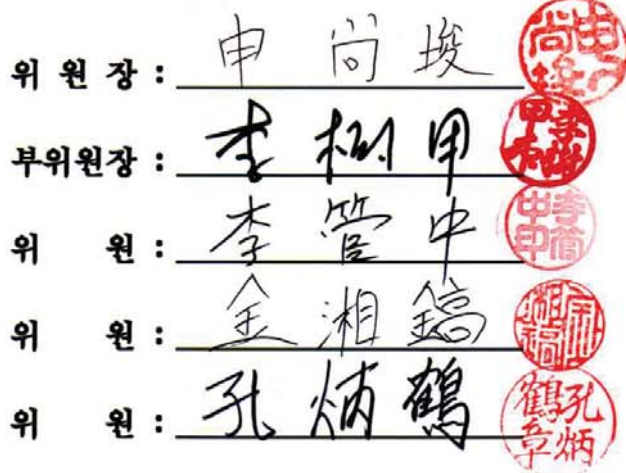 위 원 장 : 申 尚 埈
부위원장 : 李 樹 甲
위 원 : 李 管 中
위 원 : 金 湘 鎬
위 원 : 孔 炳 鶴
鶴孔
章炳